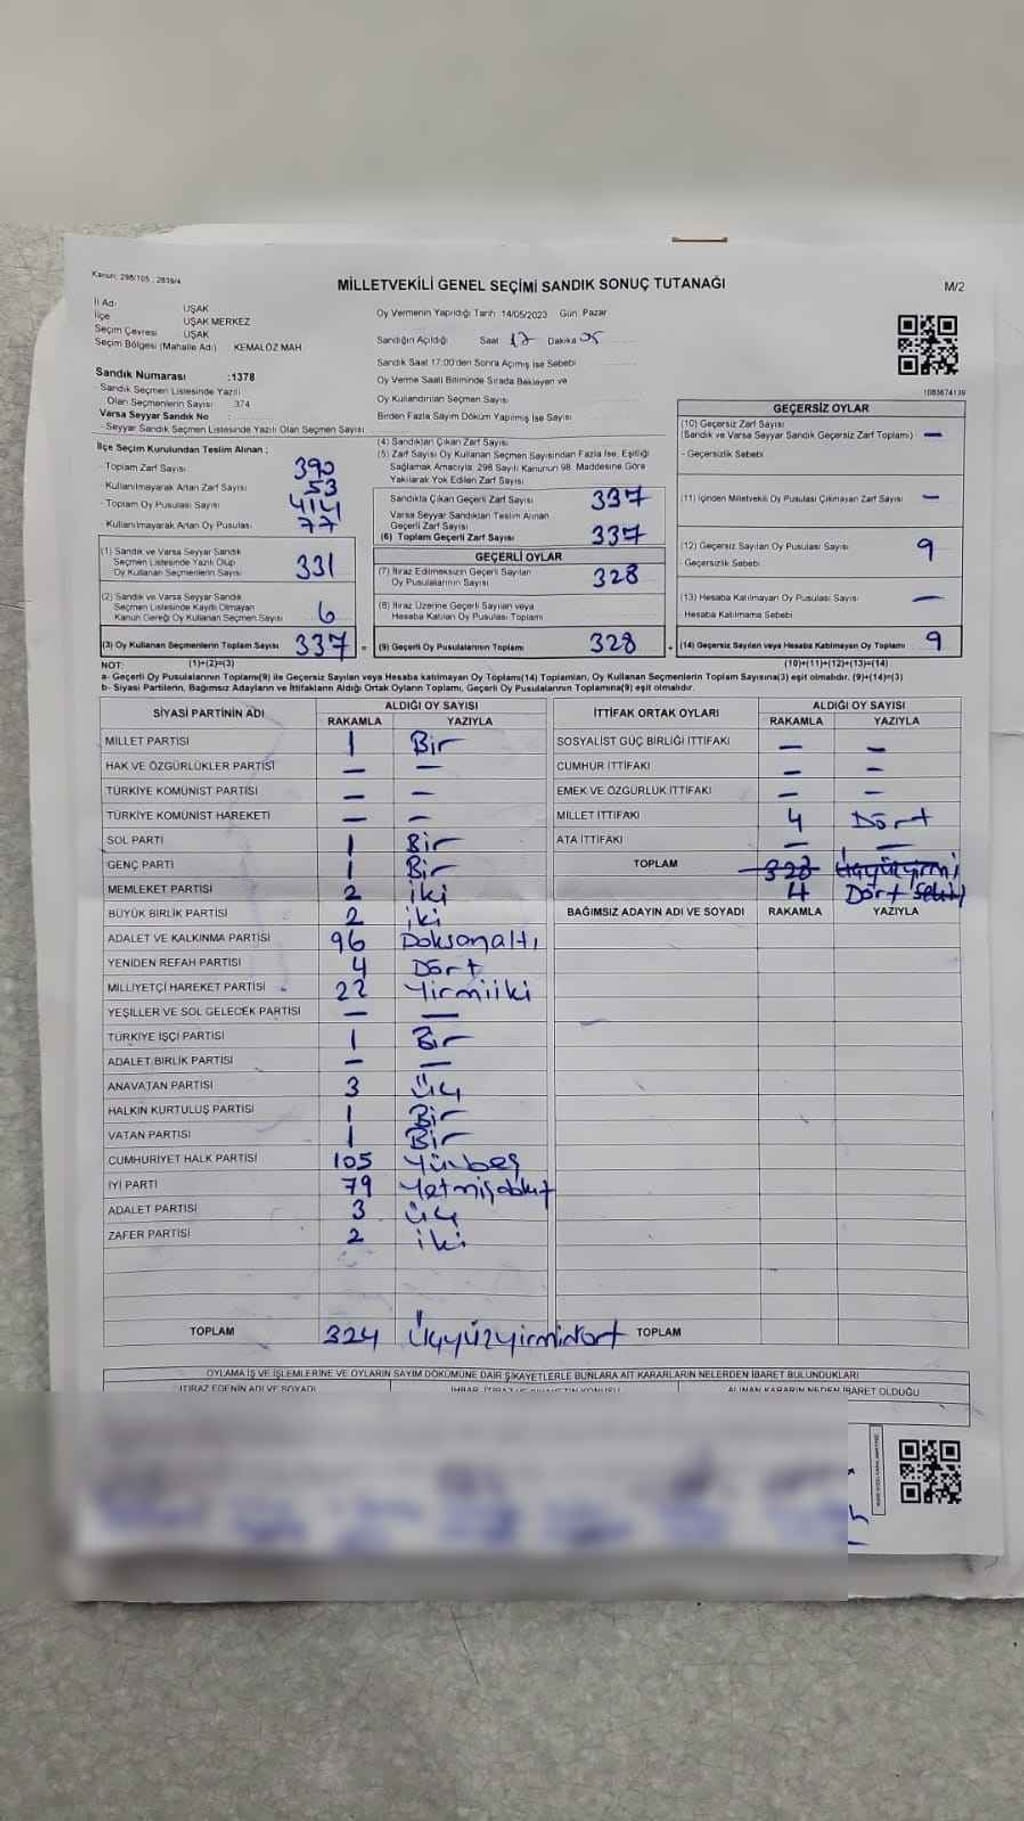 Kanun: 298/105 ; 2839/4
MİLLETVEKİLİ GENEL SEÇİMİ SANDIK SONUÇ TUTANAĞI
M/2
İl Adı UŞAK
İlçe UŞAK MERKEZ
Seçim Çevresi UŞAK
Seçim Bölgesi (Mahalle Adı) : KEMALÖZ MAH
Sandık Numarası :1378
- Sandık Seçmen Listesinde Yazılı
Olan Seçmenlerin Sayısı : 374
Varsa Seyyar Sandık No :
- Seyyar Sandık Seçmen Listesinde Yazılı Olan Seçmen Sayısı
Oy Vermenin Yapıldığı Tarih: 14/05/2023 Gün: Pazar
Sandığın Açıldığı Saat 17 Dakika 05
Sandık Saat 17:00'den Sonra Açılmış İse Sebebi
Oy Verme Saati Bitiminde Sırada Bekleyen ve
Oy Kullandırılan Seçmen Sayısı
Birden Fazla Sayım Döküm Yapılmış İse Sayısı
1083674139
İlçe Seçim Kurulundan Teslim Alınan ;
- Toplam Zarf Sayısı 390
- Kullanılmayarak Artan Zarf Sayısı 53
- Toplam Oy Pusulası Sayısı 414
- Kullanılmayarak Artan Oy Pusulası 77
(1) Sandık ve Varsa Seyyar Sandık
Seçmen Listesinde Yazılı Olup
Oy Kullanan Seçmenlerin Sayısı 331
(2) Sandık ve Varsa Seyyar Sandık
Seçmen Listesinde Kayıtlı Olmayan
Kanun Gereği Oy Kullanan Seçmen Sayısı 6
(3) Oy Kullanan Seçmenlerin Toplam Sayısı 337 =
(1)+(2)=(3)
(4) Sandıktan Çıkan Zarf Sayısı
(5) Zarf Sayısı Oy Kullanan Seçmen Sayısından Fazla İse, Eşitliği
Sağlamak Amacıyla; 298 Sayılı Kanunun 98. Maddesine Göre
Yakılarak Yok Edilen Zarf Sayısı
Sandıkta Çıkan Geçerli Zarf Sayısı 337
Varsa Seyyar Sandıktan Teslim Alınan
Geçerli Zarf Sayısı
(6) Toplam Geçerli Zarf Sayısı 337
GEÇERLİ OYLAR
(7) İtiraz Edilmeksizin Geçerli Sayılan
Oy Pusulalarının Sayısı 328
(8) İtiraz Üzerine Geçerli Sayılan veya
Hesaba Katılan Oy Pusulası Toplamı
(9) Geçerli Oy Pusulalarının Toplamı 328 +
GEÇERSİZ OYLAR
(10) Geçersiz Zarf Sayısı
(Sandık ve Varsa Seyyar Sandık Geçersiz Zarf Toplamı) —
- Geçersizlik Sebebi
(11) İçinden Milletvekili Oy Pusulası Çıkmayan Zarf Sayısı —
(12) Geçersiz Sayılan Oy Pusulası Sayısı 9
Geçersizlik Sebebi
(13) Hesaba Katılmayan Oy Pusulası Sayısı —
Hesaba Katılmama Sebebi
(14) Geçersiz Sayılan veya Hesaba Katılmayan Oy Toplamı 9
(10)+(11)+(12)+(13)=(14)
NOT:
a- Geçerli Oy Pusulalarının Toplamı(9) ile Geçersiz Sayılan veya Hesaba katılmayan Oy Toplamı(14) Toplamları, Oy Kullanan Seçmenlerin Toplam Sayısına(3) eşit olmalıdır. (9)+(14)=(3)
b- Siyasi Partilerin, Bağımsız Adayların ve İttifakların Aldığı Ortak Oyların Toplamı, Geçerli Oy Pusulalarının Toplamına(9) eşit olmalıdır.
SİYASİ PARTİNİN ADI ALDIĞI OY SAYISI
RAKAMLA YAZIYLA
MİLLET PARTİSİ 1 Bir
HAK VE ÖZGÜRLÜKLER PARTİSİ — —
TÜRKİYE KOMÜNİST PARTİSİ — —
TÜRKİYE KOMÜNİST HAREKETİ — —
SOL PARTİ 1 Bir
GENÇ PARTİ 1 Bir
MEMLEKET PARTİSİ 2 iki
BÜYÜK BİRLİK PARTİSİ 2 iki
ADALET VE KALKINMA PARTİSİ 96 Doksanaltı
YENİDEN REFAH PARTİSİ 4 Dört
MİLLİYETÇİ HAREKET PARTİSİ 22 Yirmiiki
YEŞİLLER VE SOL GELECEK PARTİSİ — —
TÜRKİYE İŞÇİ PARTİSİ 1 Bir
ADALET BİRLİK PARTİSİ — —
ANAVATAN PARTİSİ 3 Üç
HALKIN KURTULUŞ PARTİSİ 1 Bir
VATAN PARTİSİ 1 Bir
CUMHURİYET HALK PARTİSİ 105 Yüzbeş
İYİ PARTİ 79 Yetmişdokuz
ADALET PARTİSİ 3 üç
ZAFER PARTİSİ 2 iki
TOPLAM 324 Üçyüzyirmidört
İTTİFAK ORTAK OYLARI ALDIĞI OY SAYISI
RAKAMLA YAZIYLA
SOSYALİST GÜÇ BİRLİĞİ İTTİFAKI — —
CUMHUR İTTİFAKI — —
EMEK VE ÖZGÜRLÜK İTTİFAKI — —
MİLLET İTTİFAKI 4 Dört
ATA İTTİFAKI — —
TOPLAM 328 Üçyüzyirmi
4 Dört sekiz
BAĞIMSIZ ADAYIN ADI VE SOYADI RAKAMLA YAZIYLA
TOPLAM
OYLAMA İŞ VE İŞLEMLERİNE VE OYLARIN SAYIM DÖKÜMÜNE DAİR ŞİKAYETLERLE BUNLARA AİT KARARLARIN NELERDEN İBARET BULUNDUKLARI
İTİRAZ EDENİN ADI VE SOYADI
ALINAN KARARIN NEDEN İBARET OLDUĞU